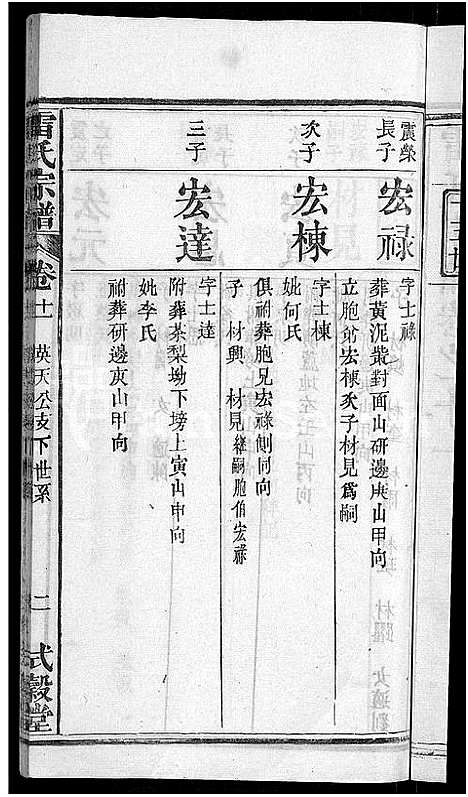 震榮
長子
宏禄
字士禄
葬黄泥凿對面山研邊庚山甲向
立胞弟宏棟次子材見爲嗣
次子
宏棟
字士棟
妣何氏
俱祔葬胞兄宏禄側同向
子 材興 材見繼嗣胞伯宏禄
三子
宏達
字士達
附葬茶梨坳下塝上寅山申向
妣李氏
祔葬研邊庚山甲向
雷氏宗譜 卷十一 英天公支下世系 二 式穀堂